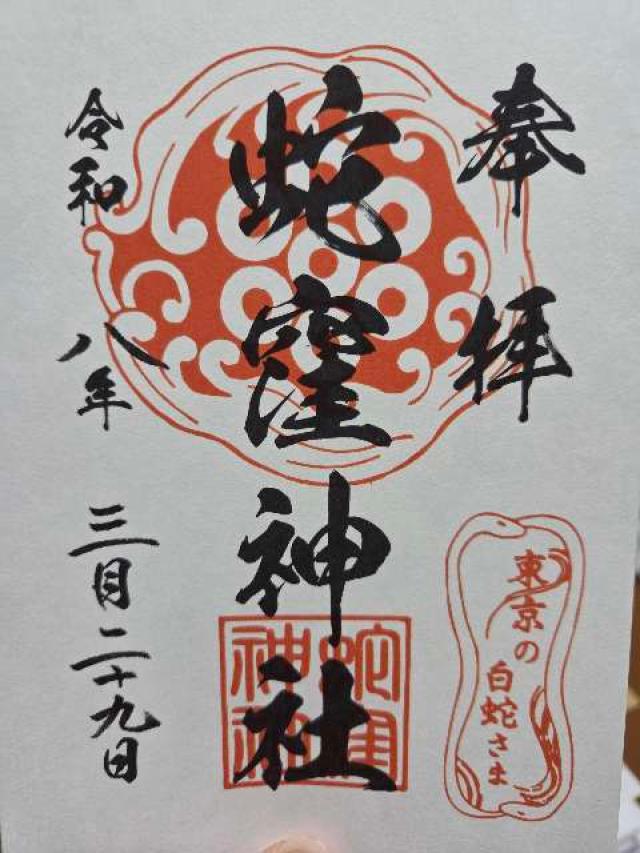 奉拝
蛇窪神社
令和八年三月二十九日
東京の
白蛇さま